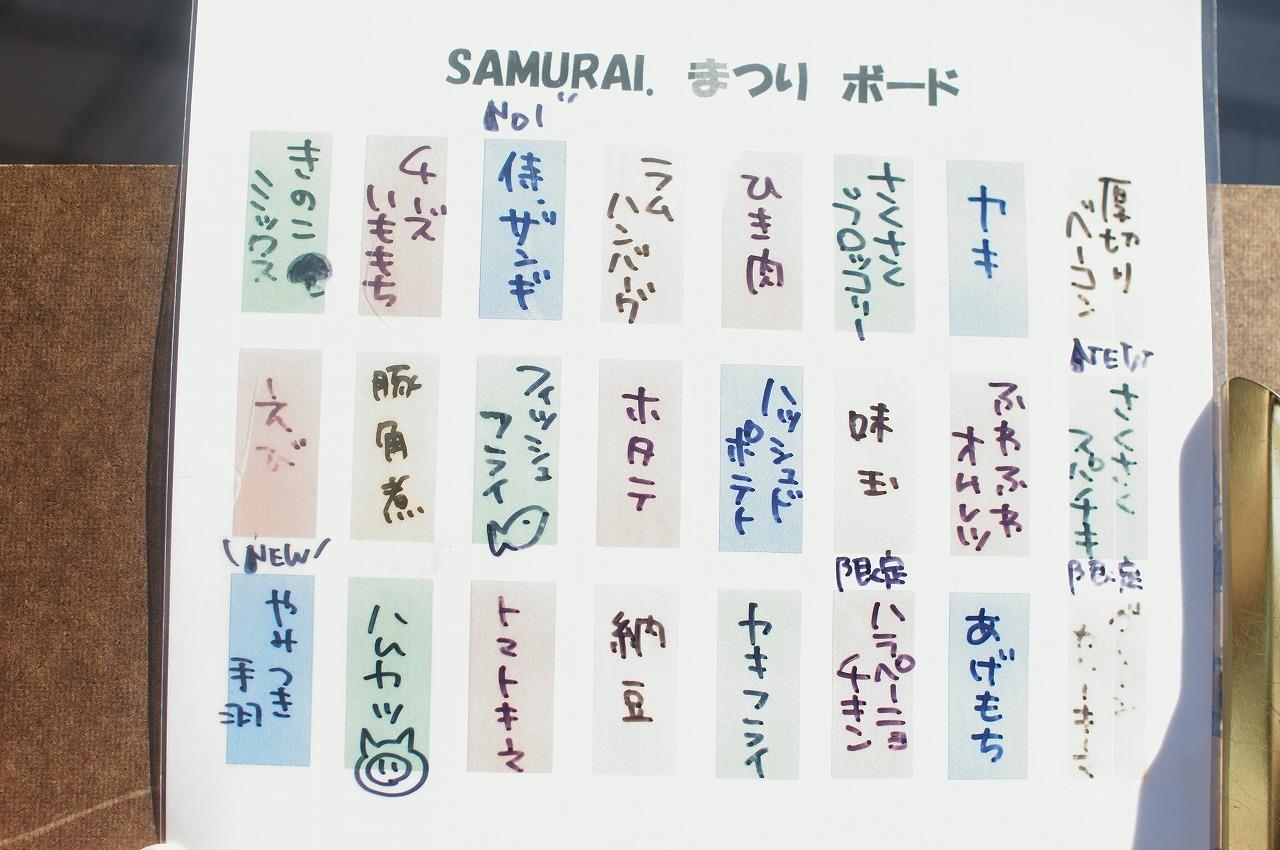 SAMURAI. まつり ボード
厚切り
ベーコン
カキ
さくさく
ブロッコリー
ひき肉
ラム
ハンバーグ
No1
侍.ザンギ
チーズ
いももち
きのこ
ミックス
NEW
さくさく
ふわふわ
オムレツ
味玉
ハッシュド
ポテト
ホタテ
フィッシュ
フライ
豚角煮
えび
限定
あげもち
限定
ハラペーニョ
チキン
カキフライ
納豆
トマトキーマ
ハムカツ
(NEW)
やみつき
手羽